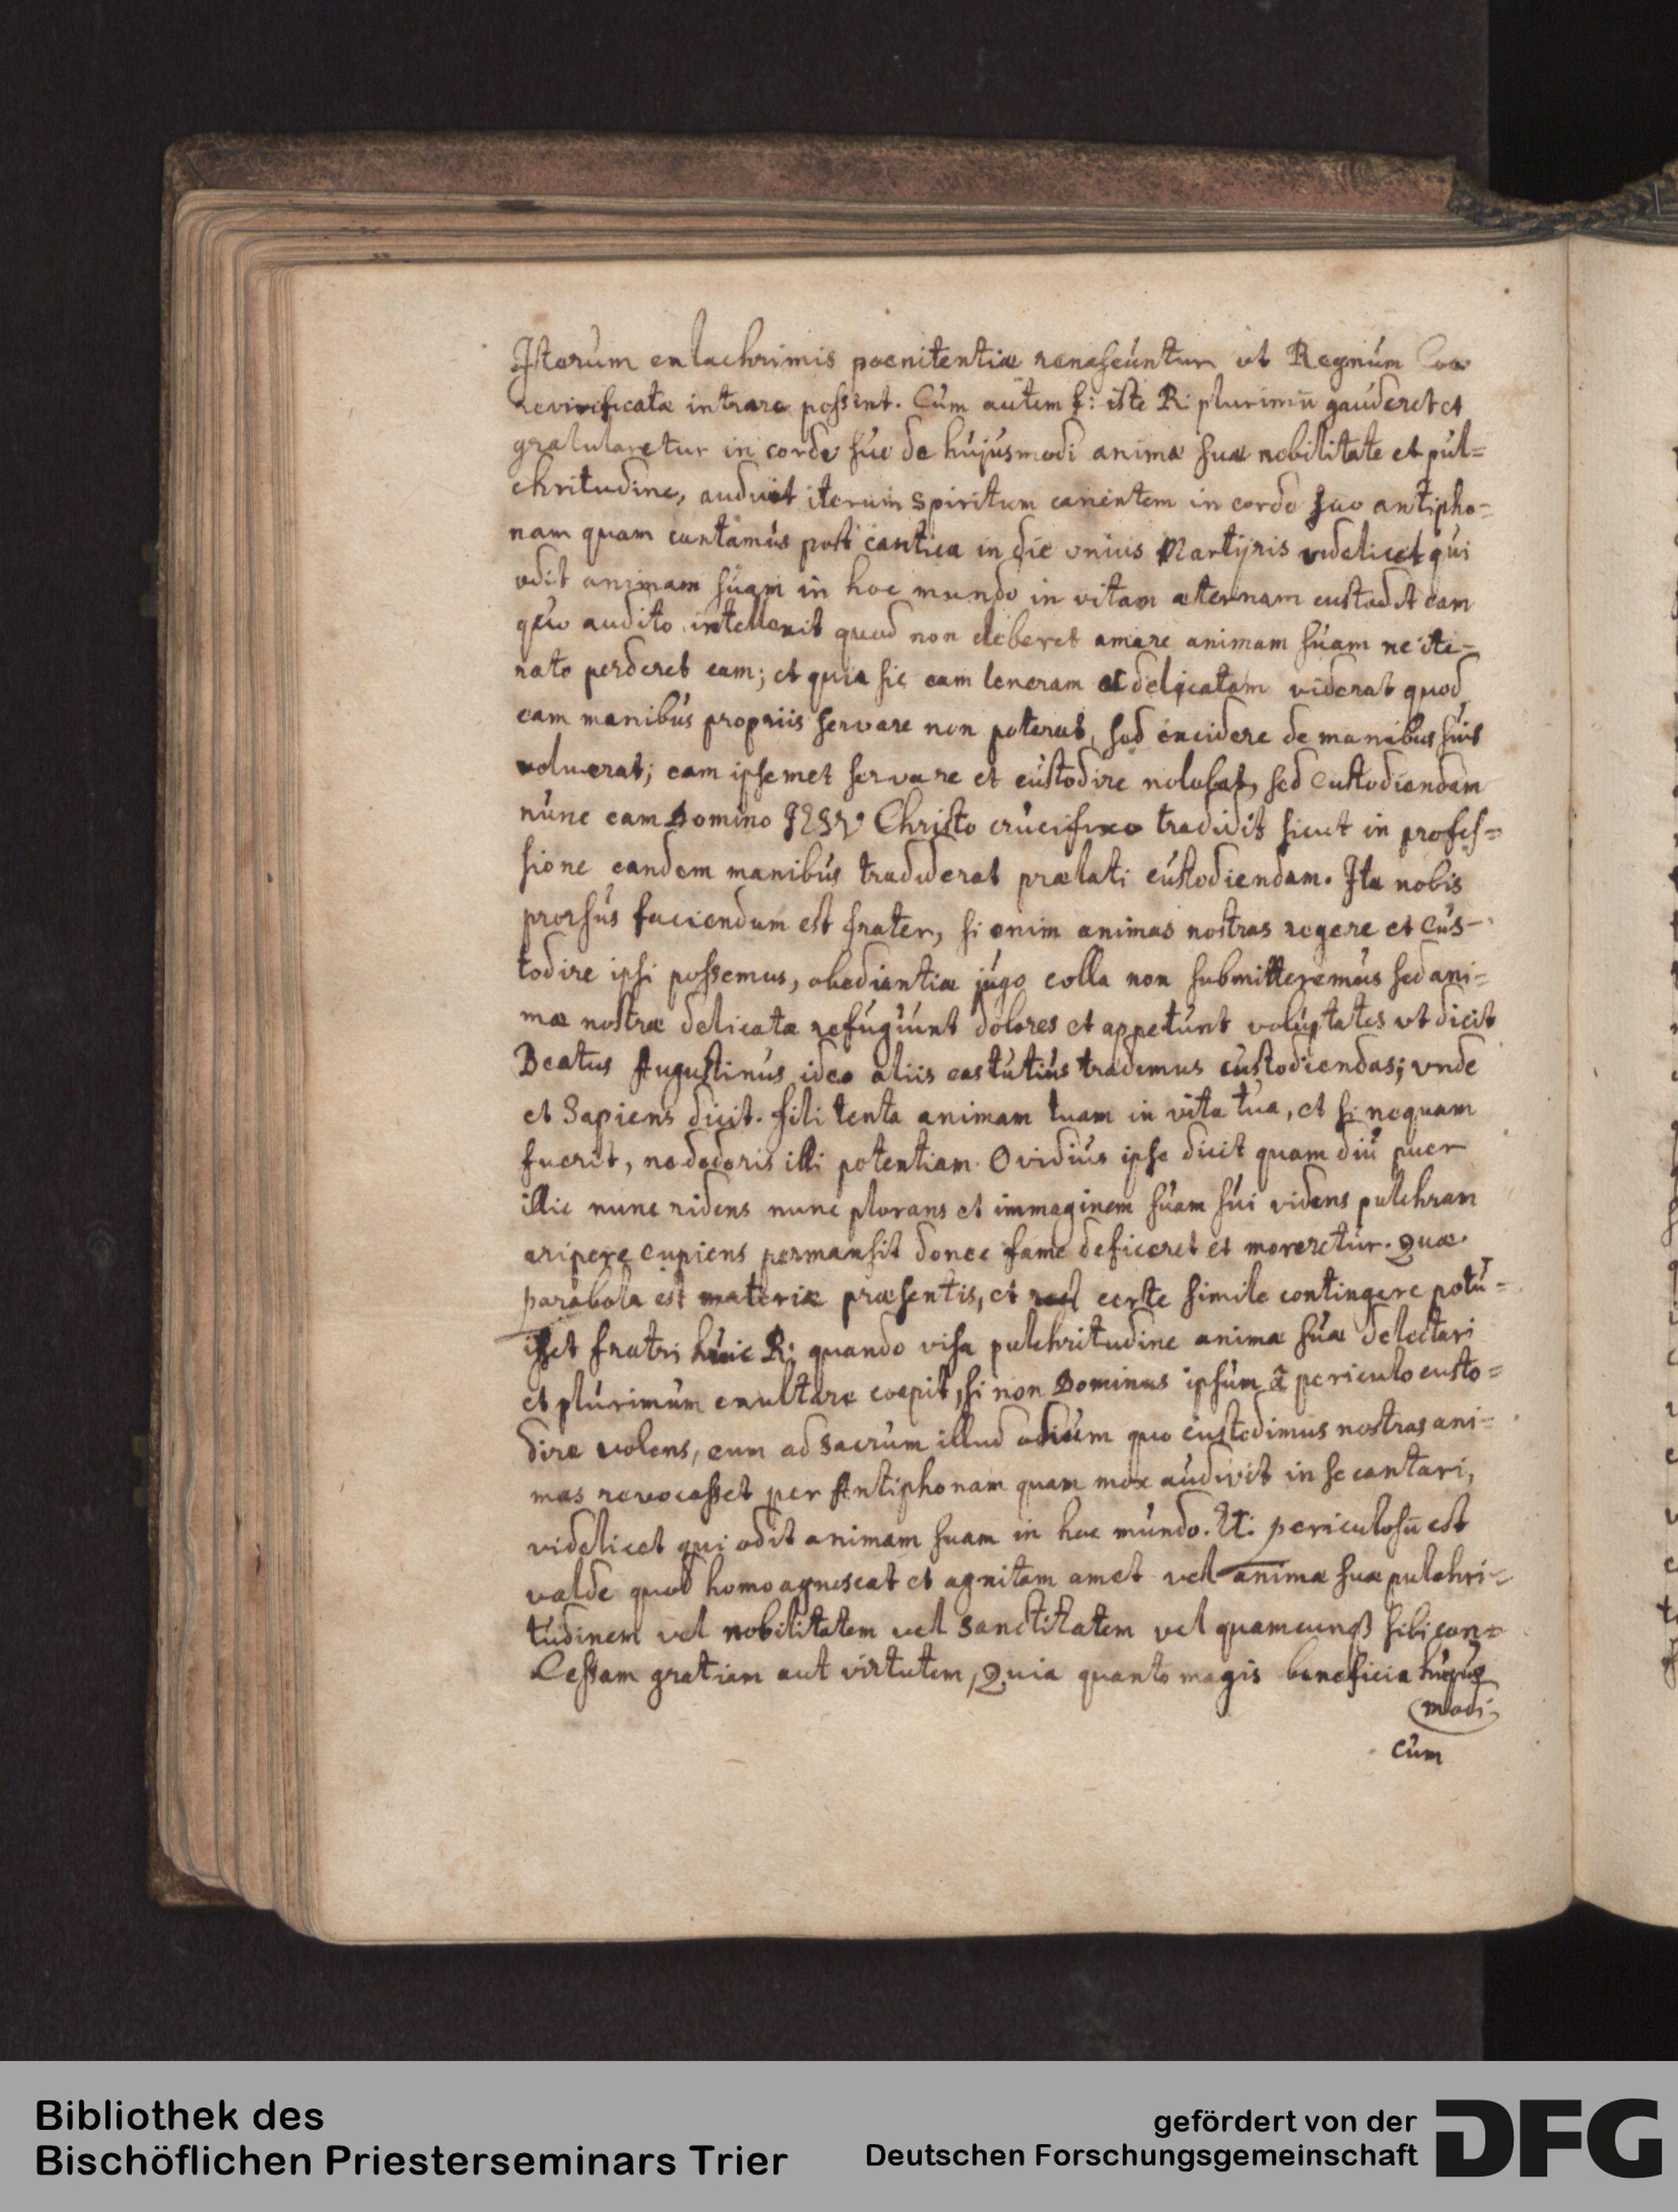 Iterum ex lachrimis poenitentiæ renascuntur ut Regnum
revivificatæ intrare possent. Cum autem f: iste R: plurimū gauderet et
gratularetur in corde suo de hujusmodi animæ suæ nobilitate et pul=
chritudine, audivit iterum spiritum canentem in corde suo antipho=
nam quam cantamus post cantica in die unius Martijris videlicet qui
odit animam suam in hoc mundo in vitam æternam custodit eam
quo audito intellexit quod non deberet amare animam suam ne ite=
rato perderet eam; et quia sic eam teneram et delicatam viderat quod
eam manibus propriis servare non poterat, sed excidere de manibus suis
voluerat; eam ipsemet servare et custodire nolebat, sed custodiendam
nunc eam Domino JESV Christo crucifixo tradidit sicut in profes=
sione eandem manibus tradiderat prælati custodiendam. Ita nobis
prorsus faciendum est frater, si enim animas nostras regere et Cus-
todire ipsi possemus, obedientiæ jugo colla non submitteremus sed ani=
mæ nostræ delicatæ refugiunt dolores et appetunt voluptates ut dicit
Beatus Augustinus ideo aliis castutius trademus custodiendas; vnde
et Sapiens dicit. fili tenta animam tuam in vita tua, et si nequam
fuerit, ne dederis illi potentiam. Ovidius ipse dicit quam diu puer
illic nunc ridens nunc plorans et immaginem suam sui videns pulchram
aripere cupiens permansit donec fame deficeret et moreretur. Quæ
parabola est materiæ præsentis, et certe simile contingere potu=
isset fratri huic R: quando visa pulchritudine animæ suæ delectari
et plurimum exultare coepit, si non Dominus ipsum ã periculo custo=
dire volens, eum ad sacrum illud odium quo custodimus nostras ani=
mas revocasset per Antiphonam quam mox audivit in se cantari,
videlicet qui odit animam suam in hoc mundo. Et: periculosū est
valde quod homo agnoscat et agnitam amet vel animæ suæ pulchri=
tudinem vel nobilitatem vel sanctitatem vel quamcunqȝ sibi con=
Cessam gratiam aut virtutem, Quia quanto magis beneficia hujus
modi
cum
Bibliothek des
Bischöflichen Priesterseminars Trier
gefördert von der
Deutschen Forschungsgemeinschaft
DFG